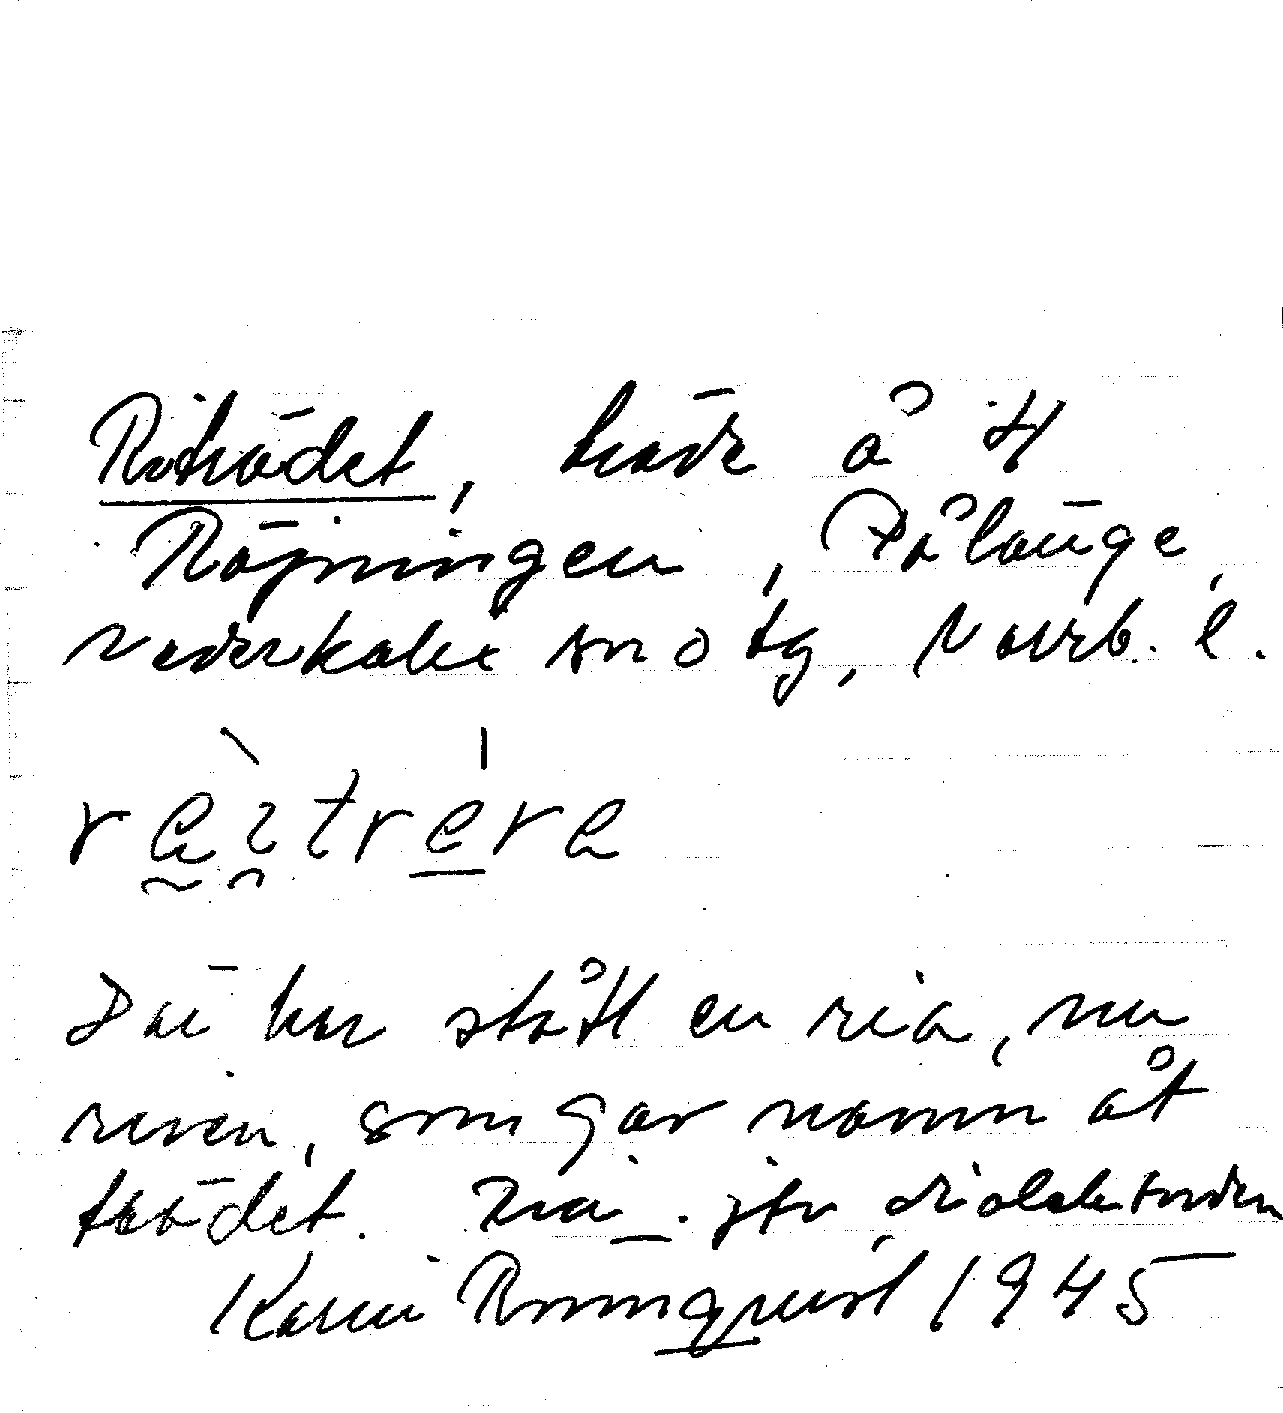 Riträdet, träde å 4
Röjningen, Pålänge,
Nederkalix sn o tg, Norrb. l.
Där har stått en ria, nu
riven, som gav namn åt
trädet. Ria. jfr dialektorden
Karin Rönnqvist 1945